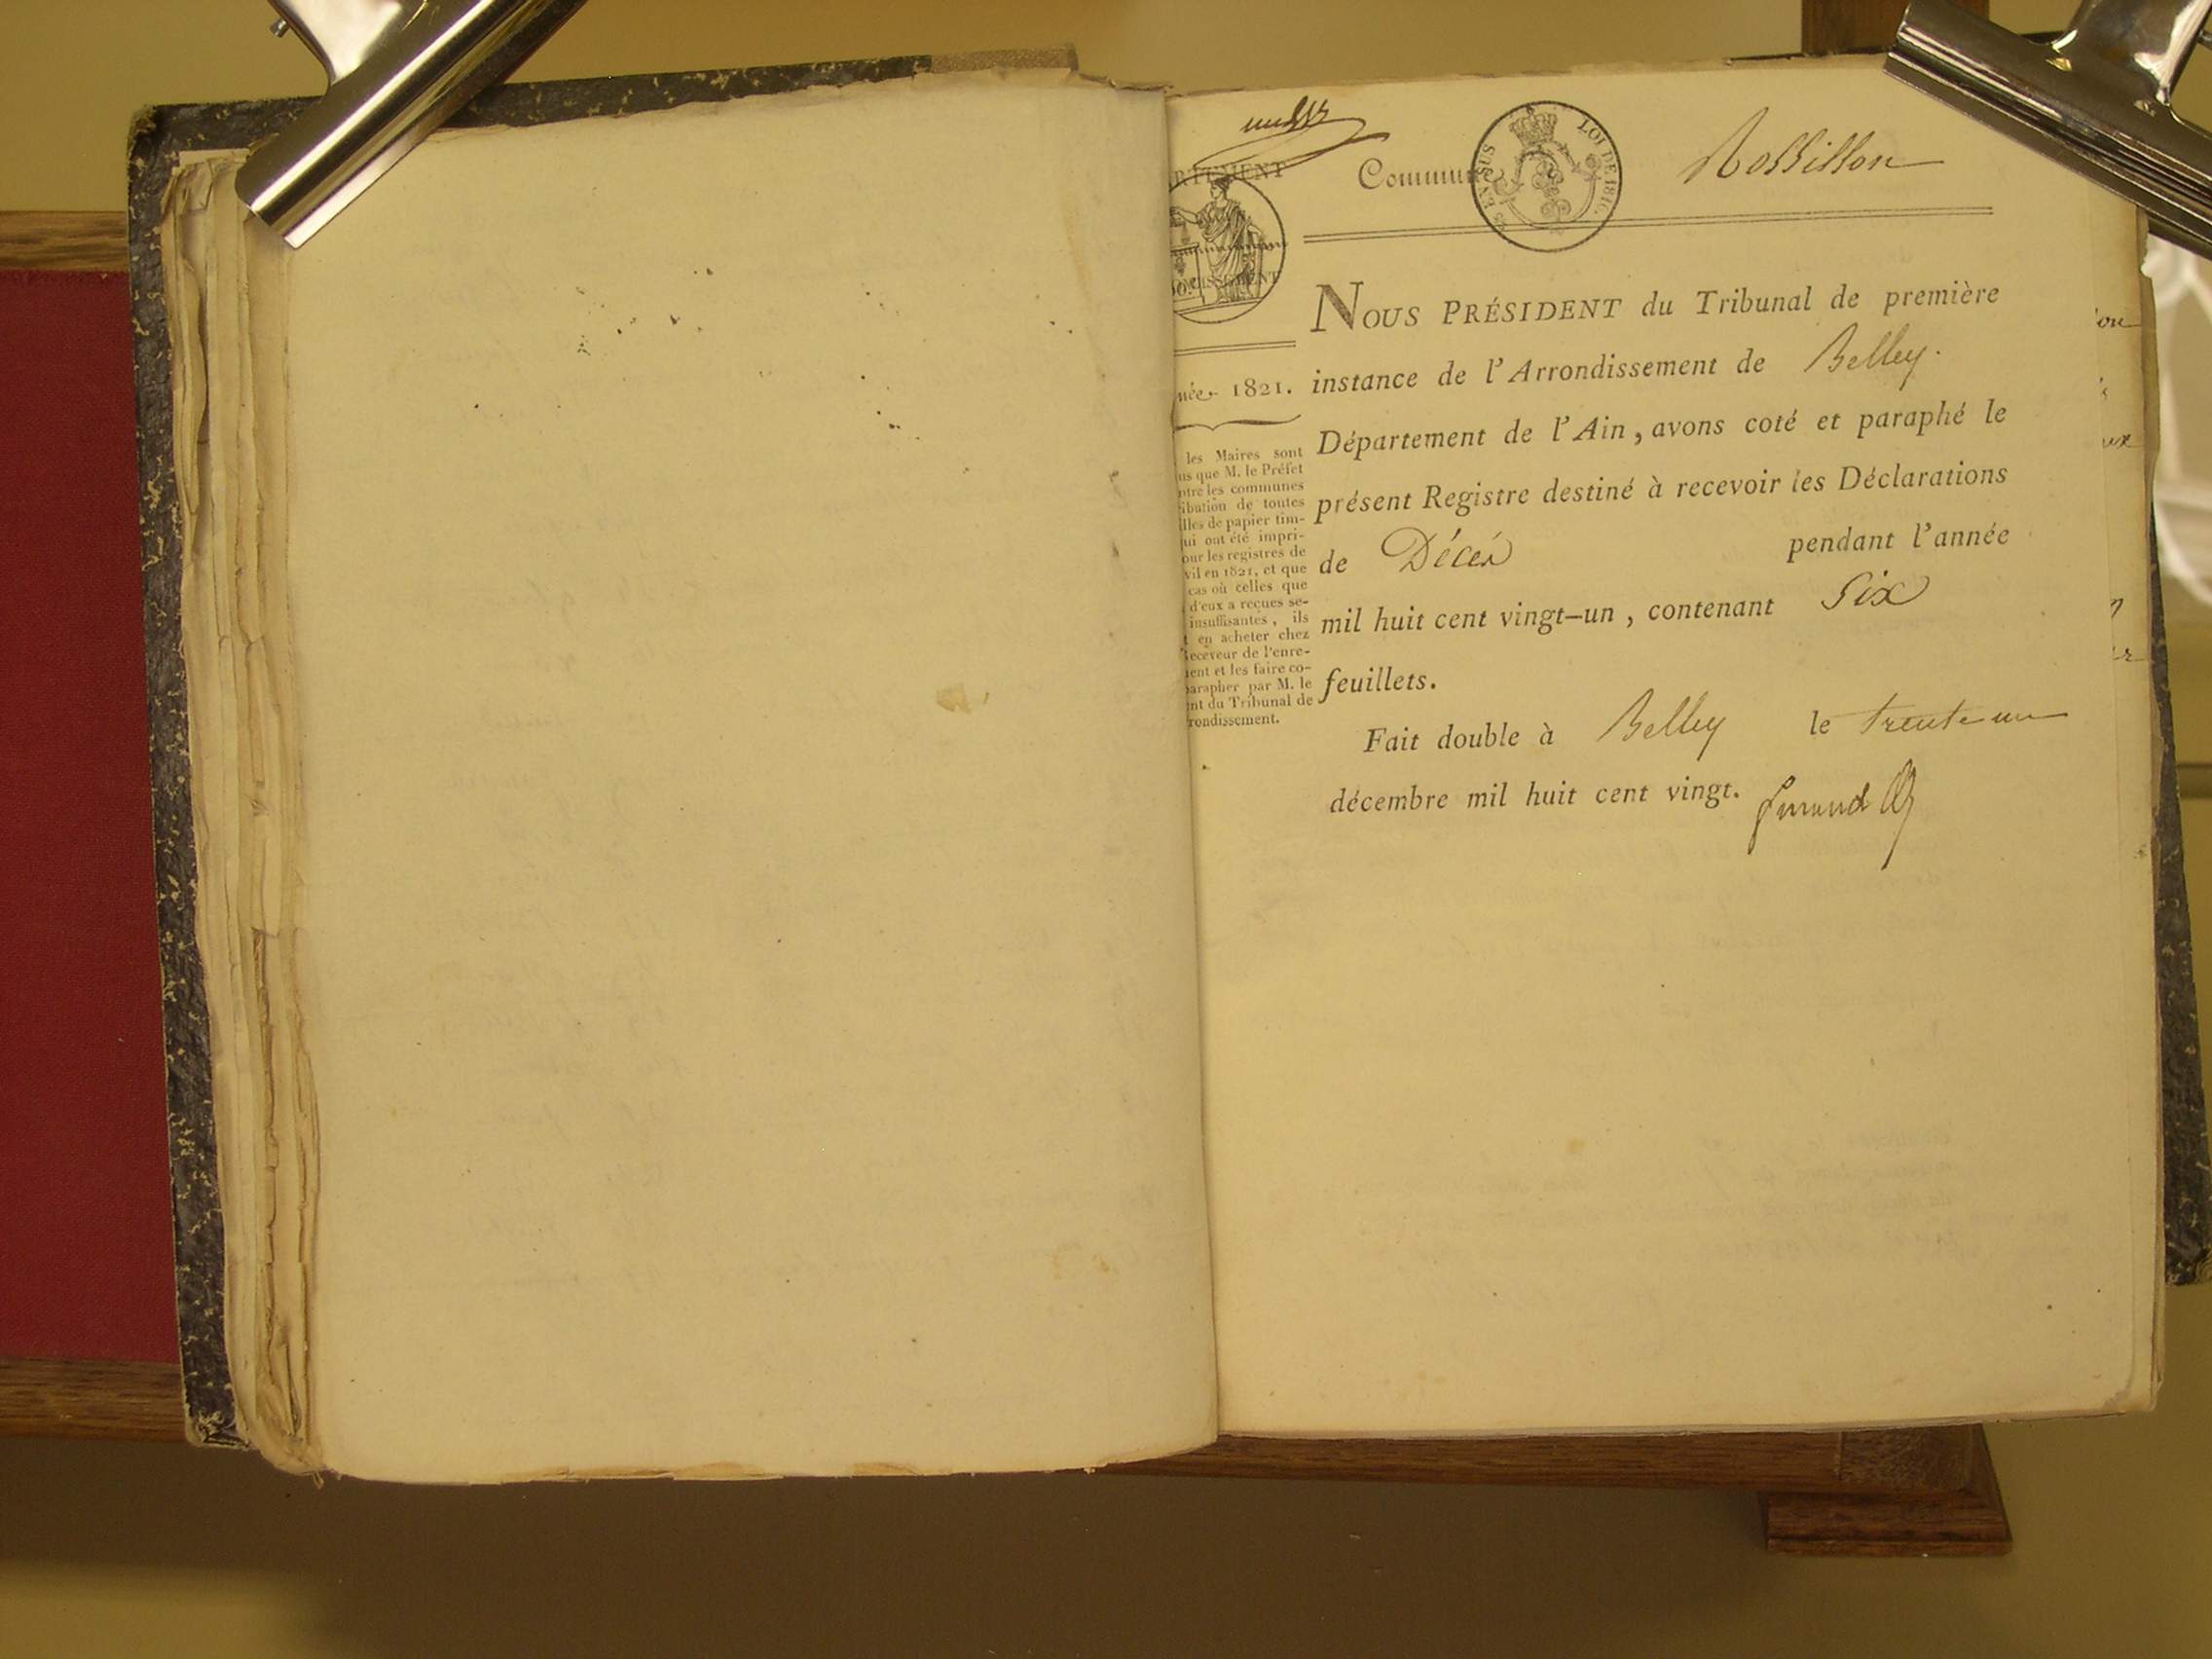 RTEMENT
Commune
Rossillon
EN SUS
LOI DE 1816.
ISSEMENT
née 1821.
les Maires sont
us que M. le Préfet
ntre les communes
ibution de toutes
lles de papier tim-
ui ont été impri-
our les registres de
vil en 1821, et que
cas où celles que
d'eux a reçues se-
insuffisantes, ils
t en acheter chez
eceveur de l'enre-
ent et les faire co-
arapher par M. le
nt du Tribunal de
rondissement.
NOUS PRÉSIDENT du Tribunal de première
instance de l'Arrondissement de Belley.
Département de l'Ain, avons coté et paraphé le
présent Registre destiné à recevoir les Déclarations
de Décès pendant l'année
mil huit cent vingt-un, contenant Six
feuillets.
Fait double à Belley le trente un
décembre mil huit cent vingt.